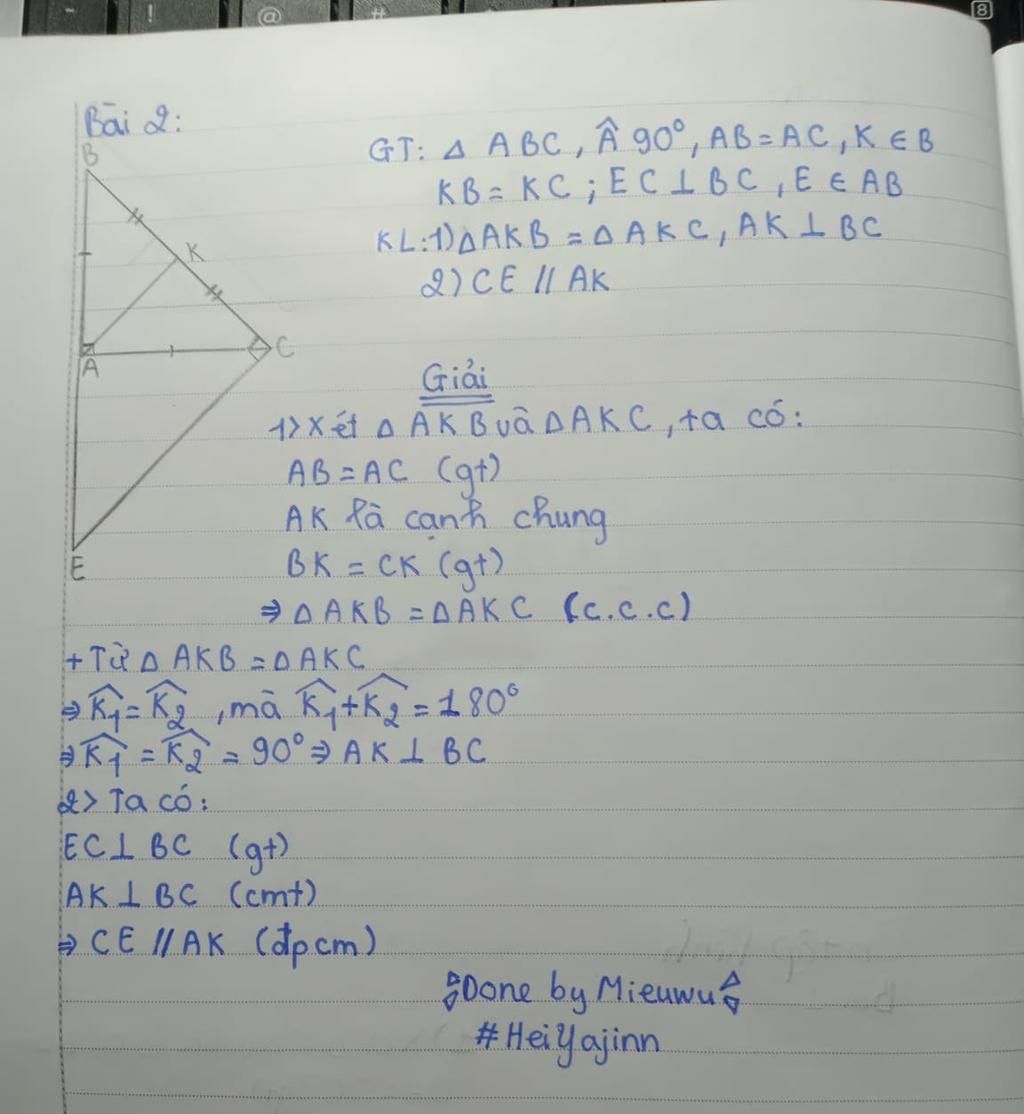 Bài 2:
GT: △ ABC, Â 90°, AB = AC, K ∈ B
KB = KC; EC ⊥ BC, E ∈ AB
KL: 1) △AKB = △AKC, AK ⊥ BC
2) CE // AK
B
K
A
C
E
Giải
1> Xét △ AKB và △AKC, ta có:
AB = AC (gt)
AK là cạnh chung
BK = CK (gt)
⇒ △AKB = △AKC (c.c.c)
+ Từ △ AKB = △AKC
⇒ K̂1 = K̂2, mà K̂1 + K̂2 = 180°
⇒ K̂1 = K̂2 = 90° ⇒ AK ⊥ BC
2> Ta có:
EC ⊥ BC (gt)
AK ⊥ BC (cmt)
⇒ CE // AK (đpcm)
Done by Mieuwu
#HeiYajinn